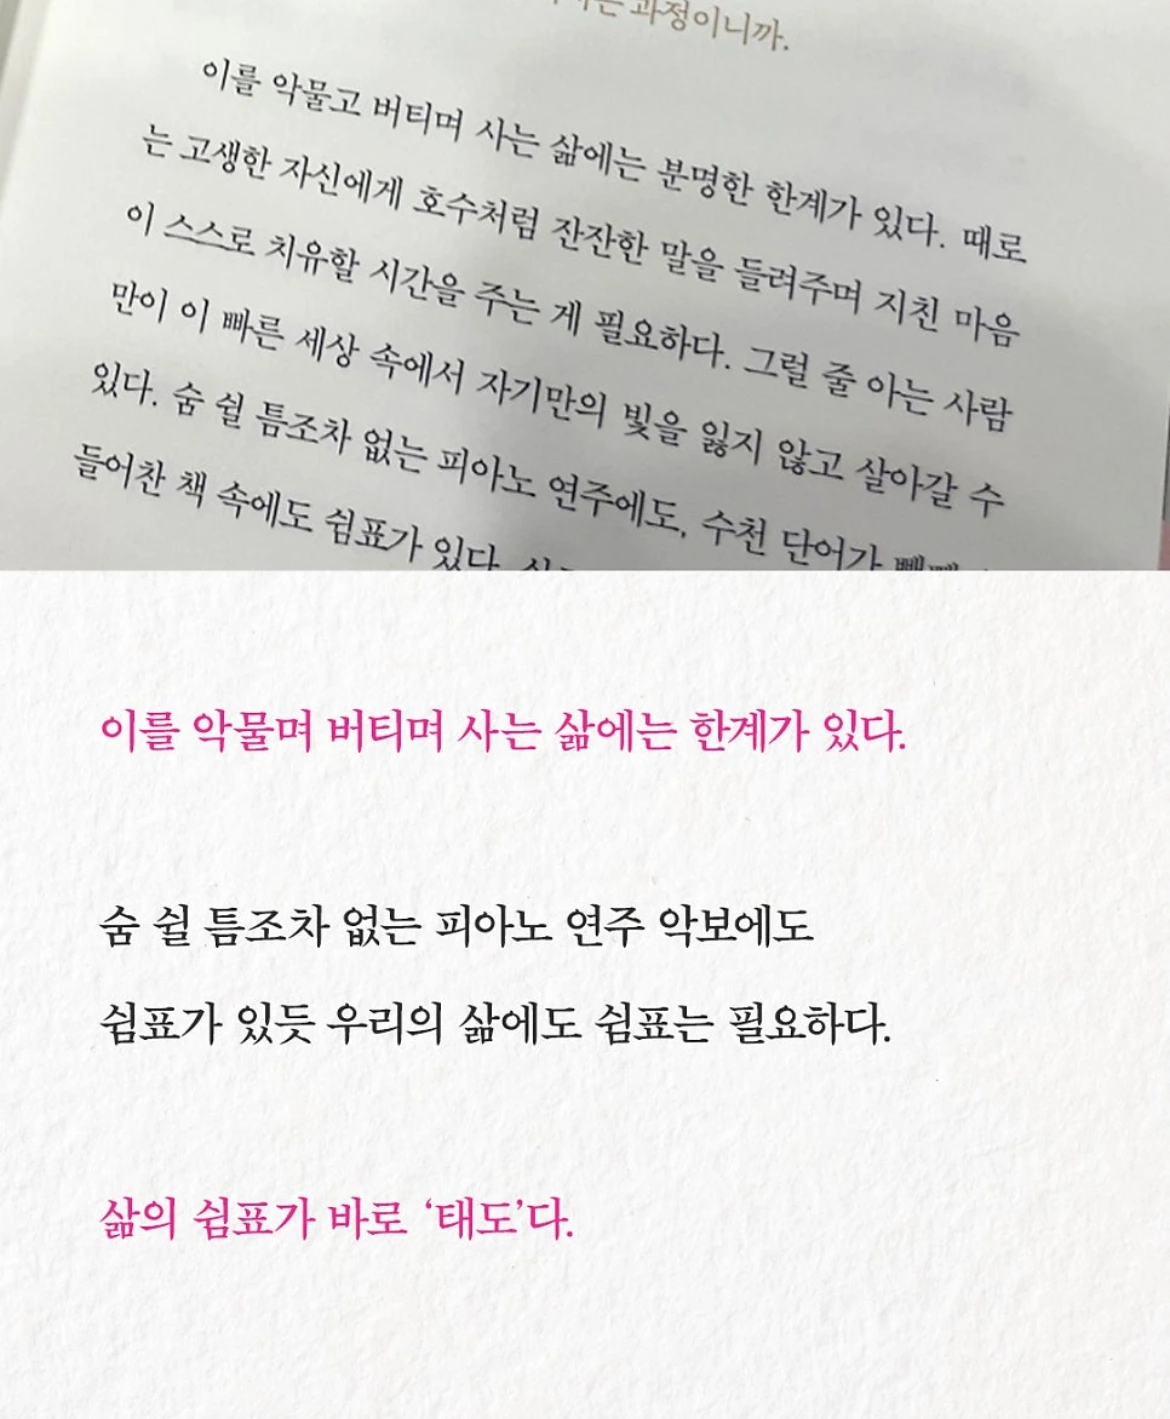 과정이니까.
이를 악물고 버티며 사는 삶에는 분명한 한계가 있다. 때로
는 고생한 자신에게 호수처럼 잔잔한 말을 들려주며 지친 마음
이 스스로 치유할 시간을 주는 게 필요하다. 그럴 줄 아는 사람
만이 이 빠른 세상 속에서 자기만의 빛을 잃지 않고 살아갈 수
있다. 숨 쉴 틈조차 없는 피아노 연주에도, 수천 단어가
들어찬 책 속에도 쉼표가 있다.
이를 악물며 버티며 사는 삶에는 한계가 있다.
숨 쉴 틈조차 없는 피아노 연주 악보에도
쉼표가 있듯 우리의 삶에도 쉼표는 필요하다.
삶의 쉼표가 바로 ‘태도’다.